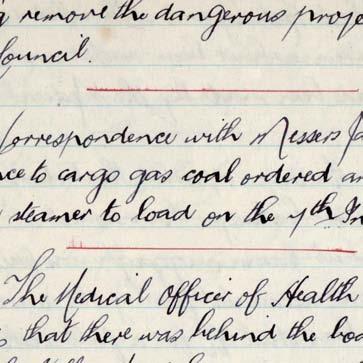 remove the dangerous proje
Council.
Correspondence with Messers Ja
nce to cargo gas coal ordered an
steamer to load on the 7th In
The Medical Officer of Health
that there was behind the boa